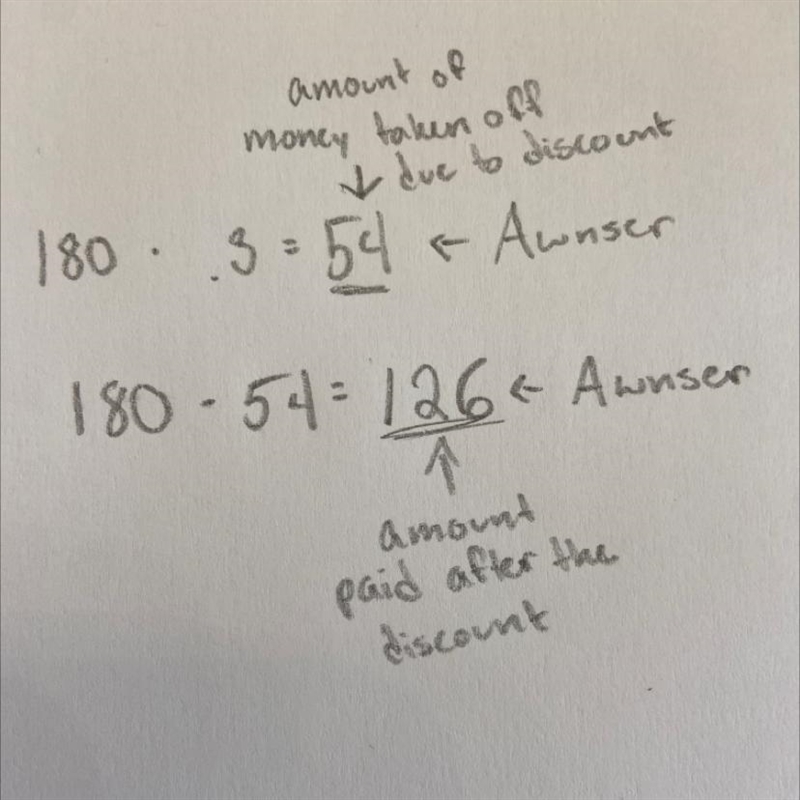 amount of
money taken off
↓ due to discount
180 · .3 = 54 ← Awnser
180 - 54 = 126 ← Awnser
↑
amount
paid after the
discount